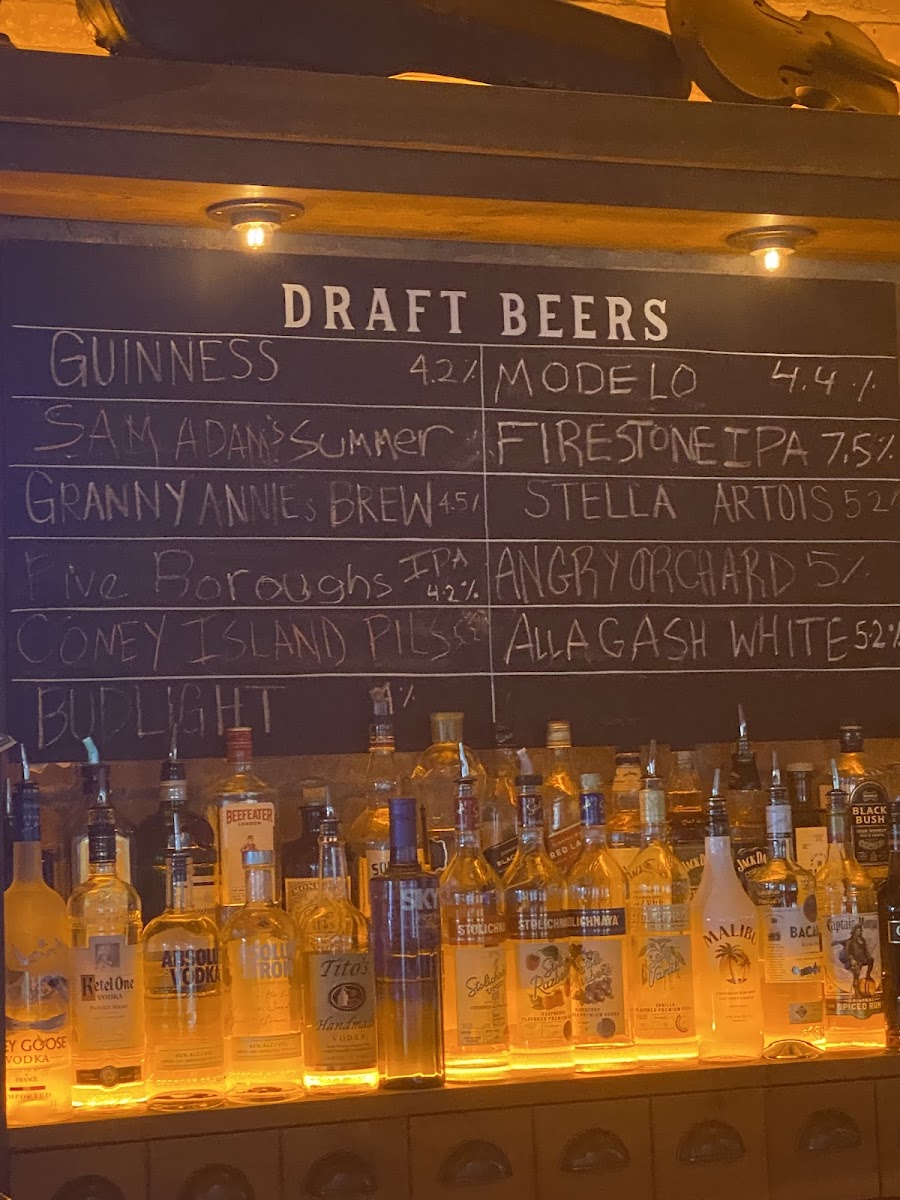 DRAFT BEERS
GUINNESS 4.2%
MODELO 4.4%
SAM ADAM'S SUMMER
FIRESTONE IPA 7.5%
GRANNY ANNIES BREW 4.5%
STELLA ARTOIS 5.2%
Five Boroughs IPA 4.2%
ANGRY ORCHARD 5%
CONEY ISLAND PILS
ALLAGASH WHITE 5.2%
BUDLIGHT
BEEFEATER
LONDON
BLACK
BUSH
EY GOOSE
VODKA
Ketel One
VODKA
ABSOLU
VODKA
40% ALC./VOL.
Tito's
Handmade
VODKA
SKY
STOLICHN
STOLICH
OLICHNAYA
VANILLA
RED LA
JACK DA
MALIBU
BACA
Captain Morgan
SPICED RUM